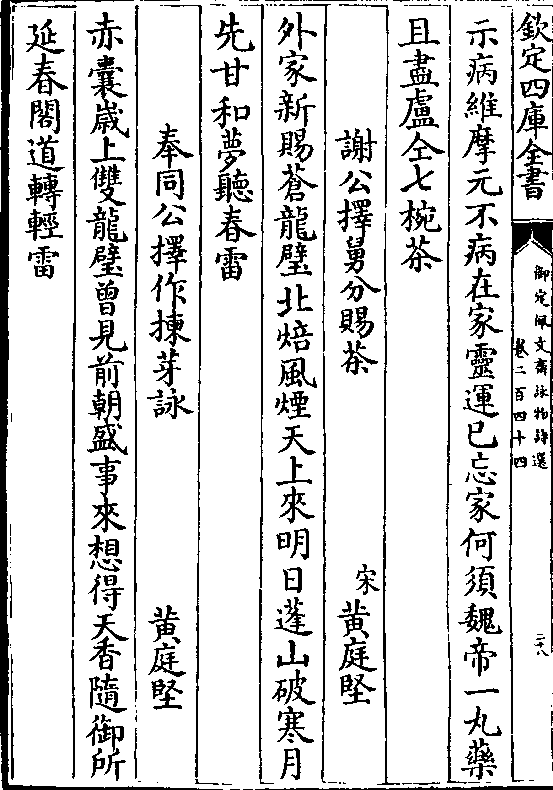 欽定四庫全書
御定佩文齋詠物詩選
卷二百四十四
二十八
示病維摩元不病在家靈運已忘家何須魏帝一丸藥
且盡盧仝七椀茶
謝公擇舅分賜茶 宋 黃庭堅
外家新賜蒼龍璧北焙風煙天上來明日蓬山破寒月
先甘和夢聽春雷
奉同公擇作揀芽詠 黃庭堅
赤囊歲上雙龍璧曾見前朝盛事來想得天香隨御所
延春閣道轉輕雷